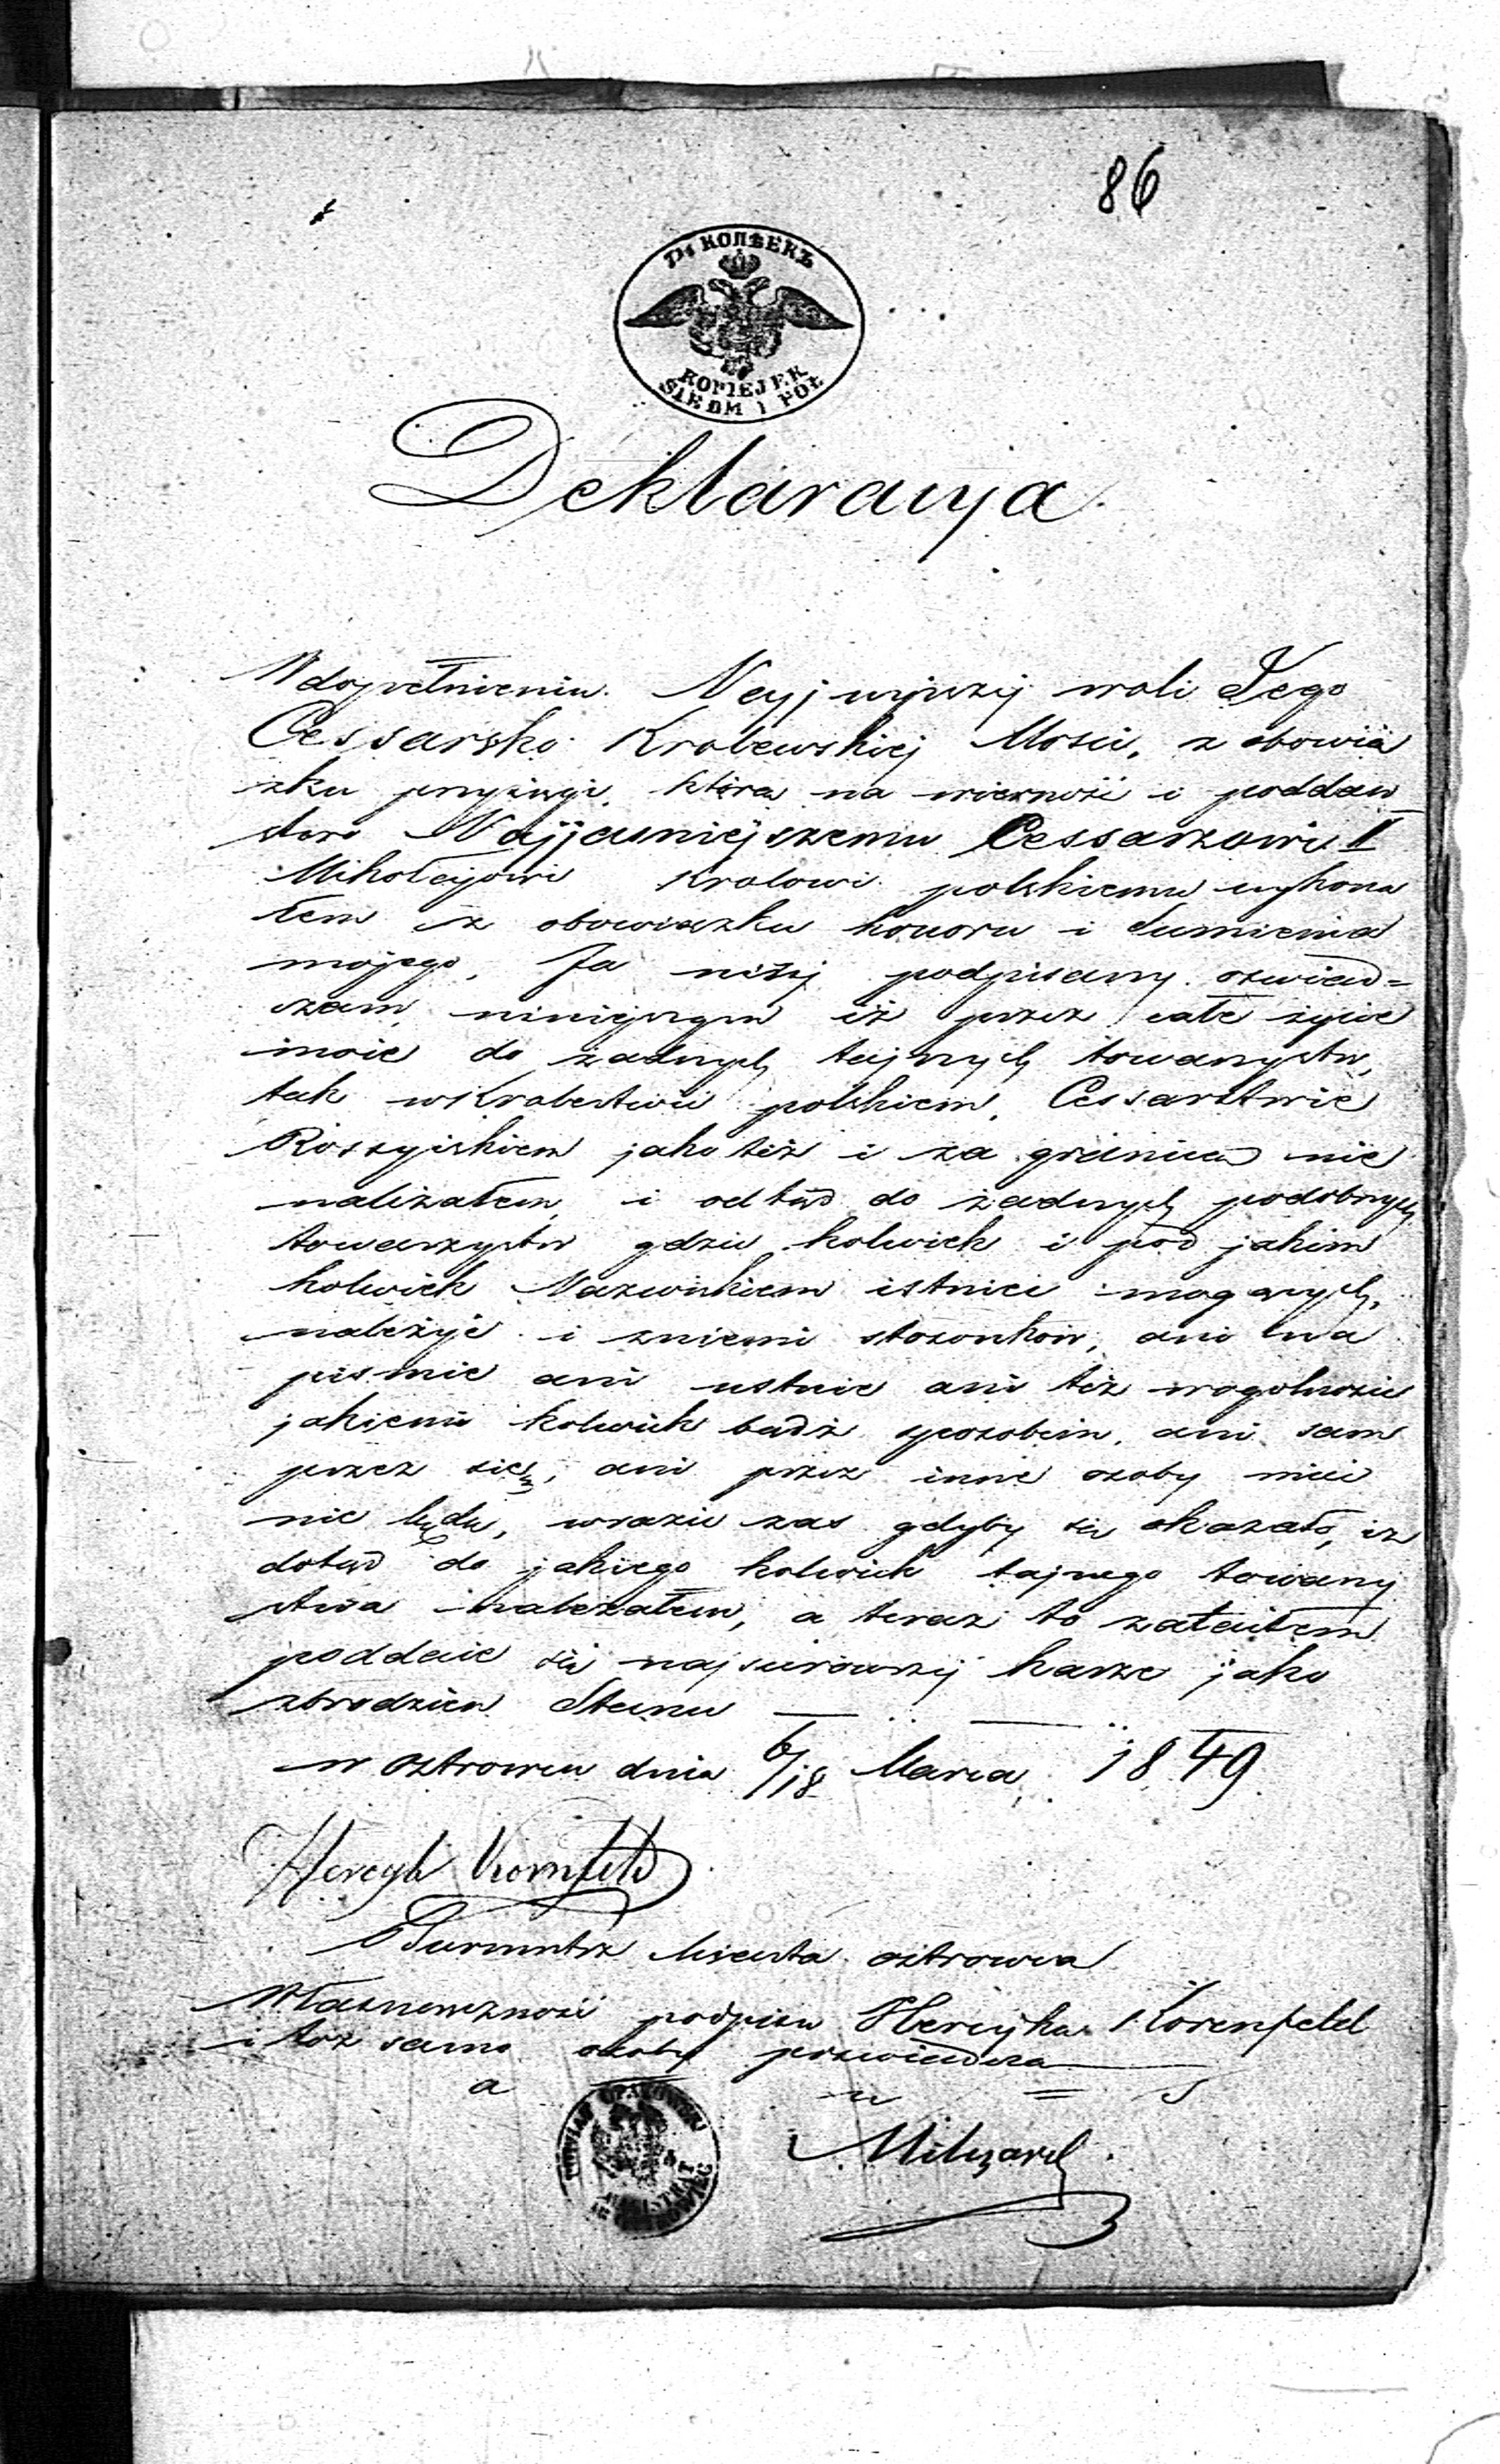 86
7½ КОПѢЕКЪ
KOPIEJEK
SIEDM I PÓŁ
Deklaracyja.
W dopełnieniu Neyjwyższej woli Jego
Cessarsko Krolewskiej Mosci, z obowią
zku przysięgi, która na wierność i poddan
stwo Najjasniejszemu Cessarzowi I
Mikołajowi Krolowi polskiemu wykona
łem iz obowiązku honoru i Sumienia
mojego, Ja niżej podpisany oswiad=
czam niniejszym iż przez całe życie
moie do żadnych tajnych towarzystw,
tak w Krolestwie polskiem, Cessarstwie
Rossyiskiem jako też i za granicą nie
należałem, i odtąd do żadnych podobnych
towarzystw gdzie kolwiek i pod jakim
kolwiek Nazwiskiem istnieć mogących,
należyć i zniemi stosonków, ani na
pismie ani ustnie ani też wogolnosci
jakiemi kolwiek bądź sposobem, ani sam
przez się, ani przez inne osoby mieć
nie będę, wrazie zas gdyby się okazało, iz
dotąd do jakiego kolwiek tajnego towarzy
stwa należałem, a teraz to zataiłem
poddaie się najsurowszej karze jako
zbrodzien Stanu
w Ostrowcu dnia 6/18 Marca 1849
Hercyk Kornfeld
Burmistrz Miasta Ostrowca
Własnoręcznosć podpisu Hercyka Korenfeld
i toż samo osoby poswiadcza
POWIAT OPATOWSKI
MAGISTRAT